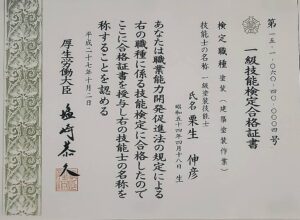 第一五-一-〇六〇-四〇-〇〇〇四号
一級技能検定合格証書
検定職種 塗装(建築塗装作業)
技能士の名称 一級塗装技能士
氏名 栗生 伸彦
昭和五十四年四月十八日生
あなたは職業能力開発促進法の規定による
右の職種に係る技能検定に合格したので
ここに合格証書を授与し右の技能士の名称を
称することを認める
平成二十七年十月二日
厚生労働大臣 塩崎恭久